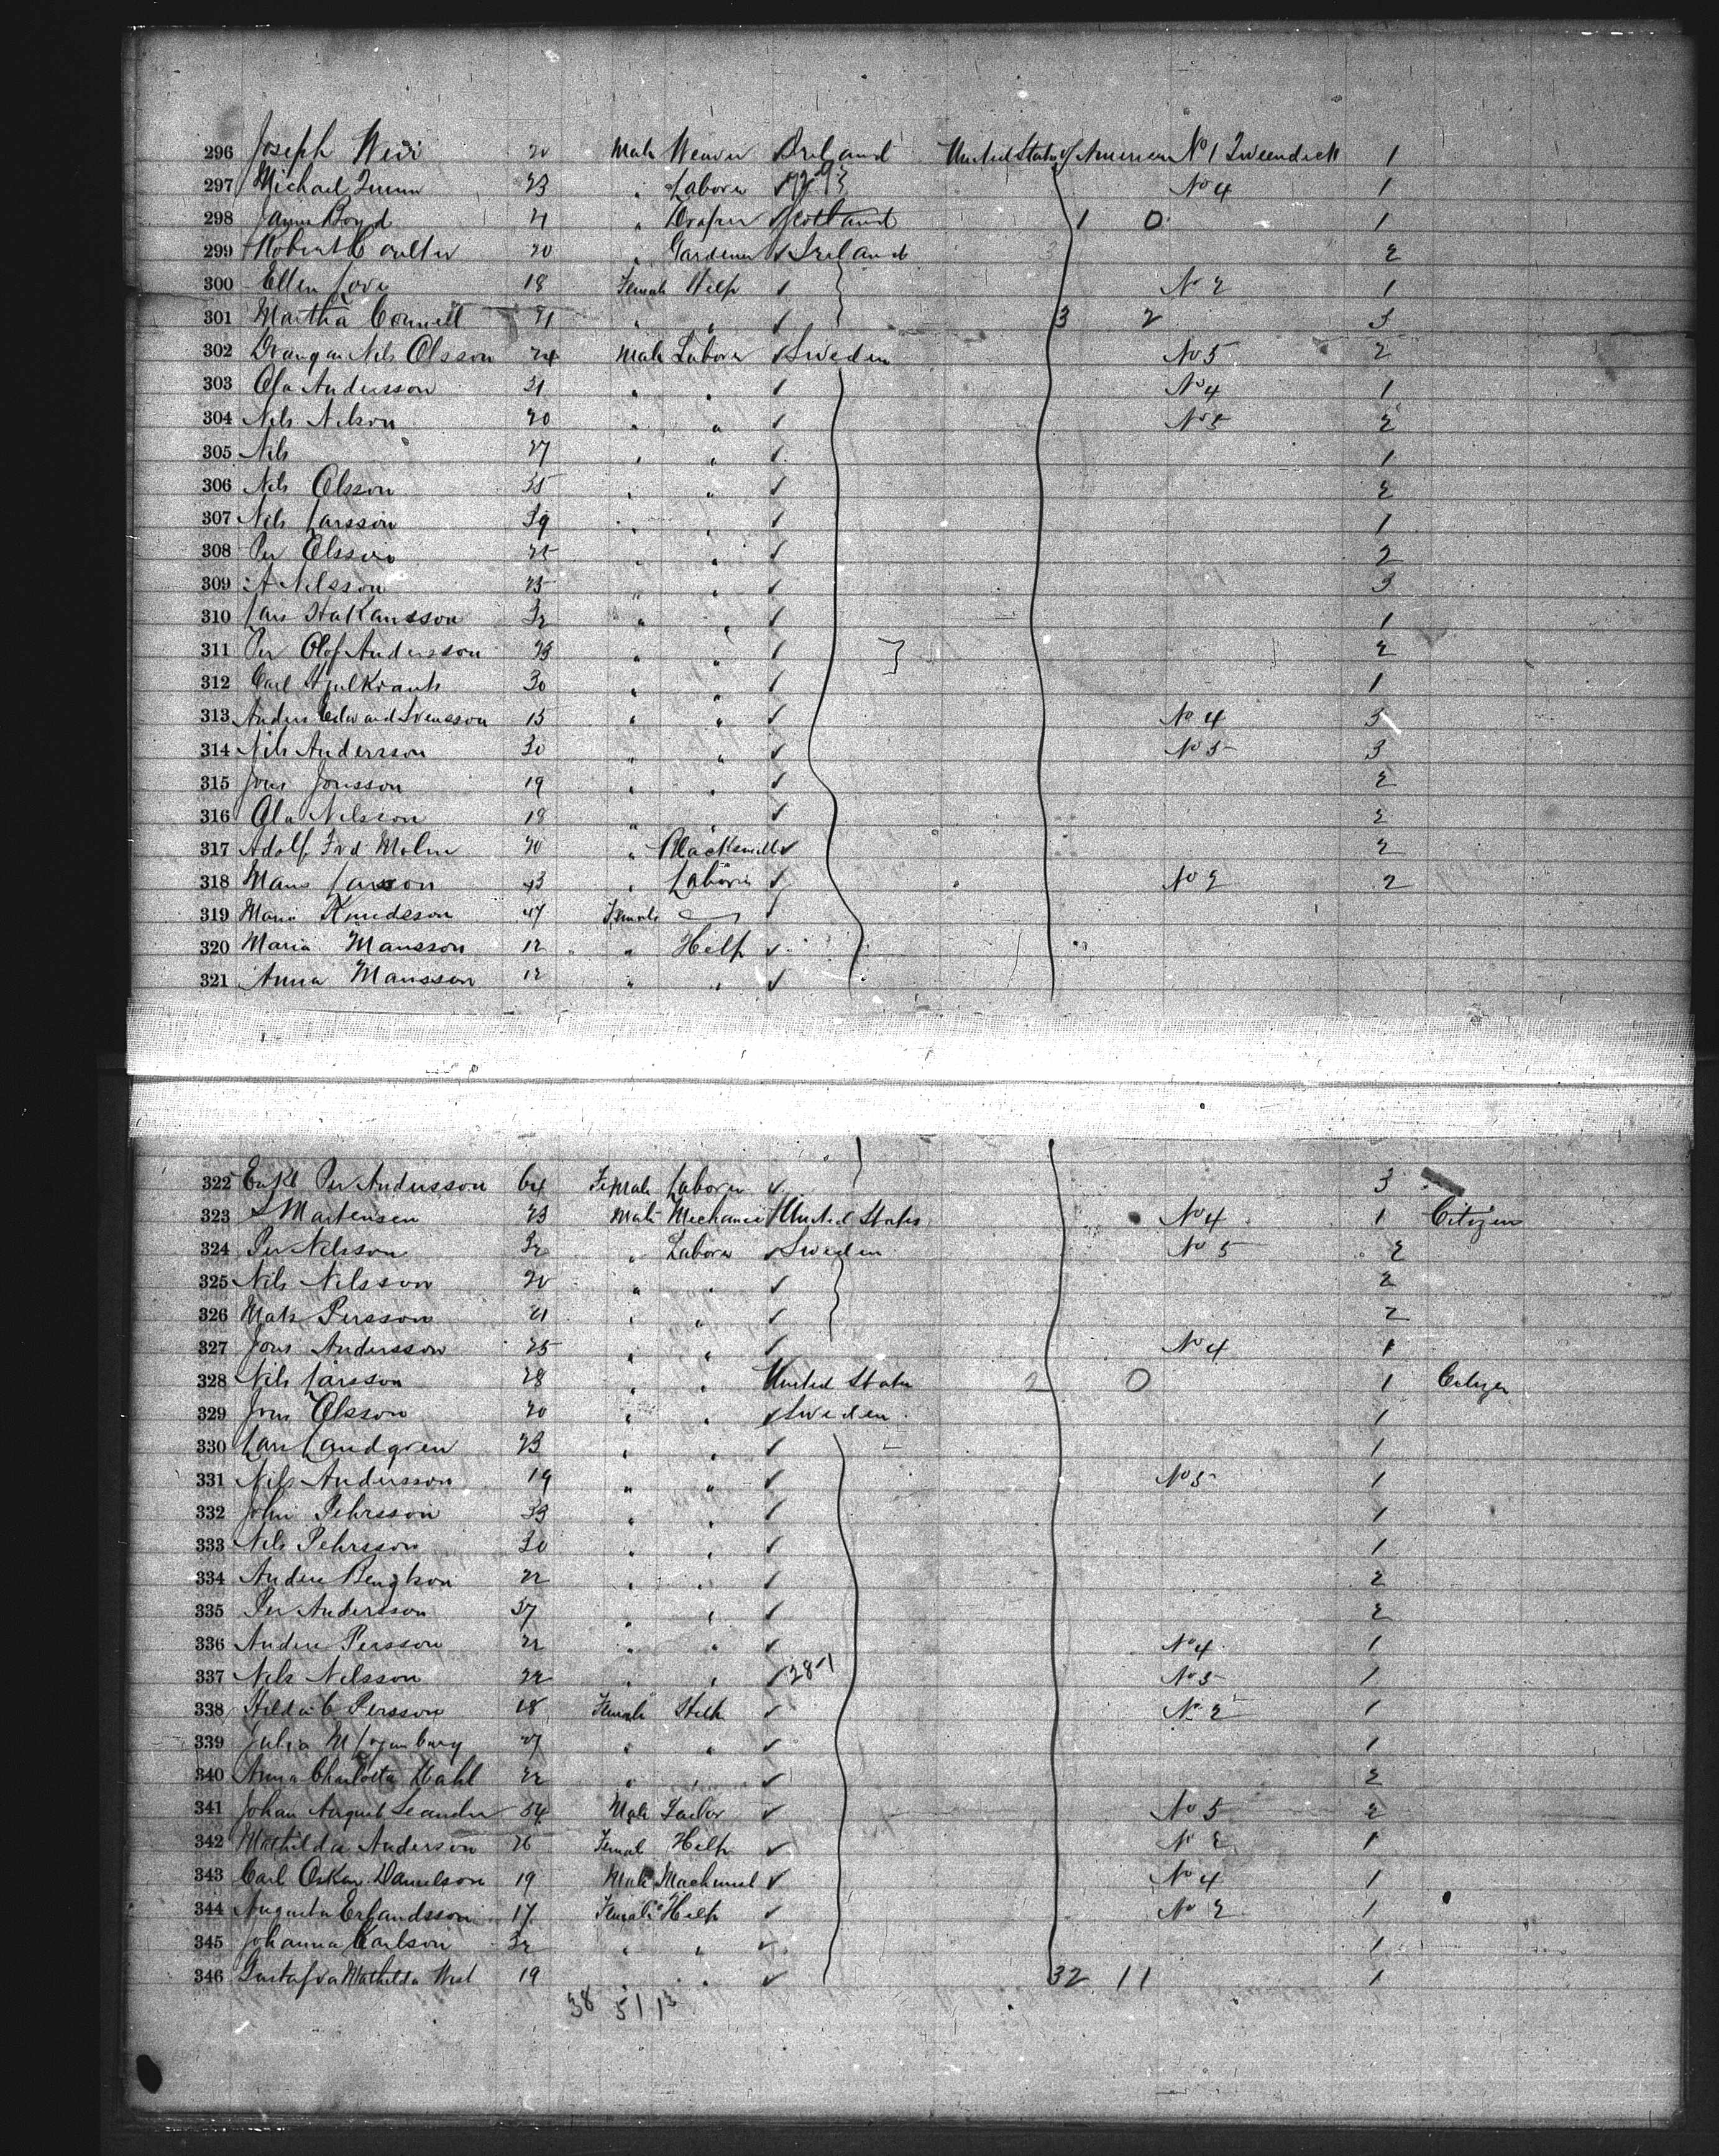 296 Joseph Weir 20 Male Weaver Ireland United States of American No 1 Tweendeck 1
297 Michael Quinn 23 " Laborer 1
No 4
298 James Boyd 21 " Draper Scotland 1 0 1
299 Robert Coulter 20 " Gardener Ireland 2
300 Ellen Love 18 Female Help No 2 1
301 Martha Connell 21 " " 3 2 3
302 Nils Olsson 24 Male Laborer Sweden No 5 2
303 Ola Andersson 21 " " No 4 1
304 Nils Nilson 20 " " No 5 2
305 Nils 27 " " 1
306 Nils Olsson 35 " " 2
307 Nils Larsson 39 " " 1
308 Per Olsson 25 " " 2
309 A Nilsson 25 " " 3
310 Lars Hakansson 32 " " 1
311 Per Olof Andersson 23 " " 2
312 Carl 30 " " 1
313 Anders Edward Svensson 15 " " No 4 3
314 Nils Andersson 30 " " No 5 3
315 Jons Jonsson 19 " " 2
316 Ola Nilsson 18 " " 2
317 Adolf Frd Malm 20 " Blacksmith 2
318 Mans Larsson 43 " Laborer No 2 2
319 Maria Knudsson 47 Female
320 Maria Mansson 12 " Help
321 Anna Mansson 12 " "
322 Per Andersson 64 Female Laborer 3
323 S Martensen 23 Male Mechanic United States No 4 1 Citizen
324 Per Nilsson 32 " Laborer Sweden No 5 2
325 Nils Nilsson 20 " " 2
326 Mats Persson 21 " " 2
327 Jons Andersson 25 " " No 4 1
328 Nils Larsson 28 " " United States 2 0 1 Citizen
329 Jons Olsson 20 " " Sweden 1
330 Lars Landgren 23 " " 1
331 Nils Andersson 19 " " No 5 1
332 John Pehrsson 33 " " 1
333 Nils Pehrsson 30 " " 1
334 Anders Bengtson 22 " " 2
335 Per Andersson 37 " " 2
336 Anders Persson 22 " " No 4 1
337 Nils Nilsson 22 " " 281 No 5 1
338 Hilda C Persson 18 Female Help No 2 1
339 Julia M 27 " " 1
340 Anna Charlotta Dahl 22 " " 2
341 Johan August Leander 54 Male Tailor No 5 2
342 Mathilda Anderson 26 Female Help No 2 1
343 Carl Oskar Danielson 19 Male Machinist No 4 1
344 Augusta Erlandsson 17 Female Help No 2 1
345 Johanna Carlson 32 " " 1
346 Gustafva Mathilda West 19 " " 32 11 1
38 51 13